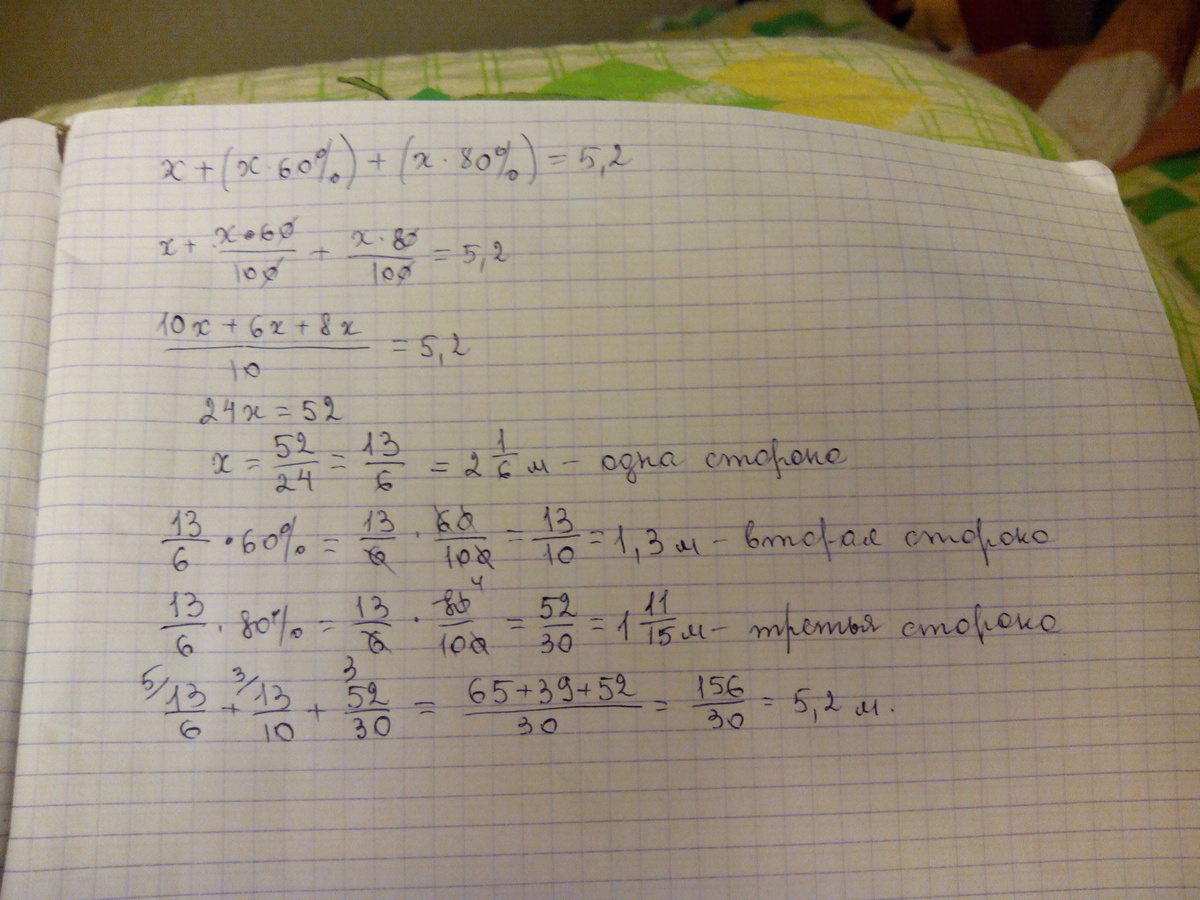 x + (x · 60%) + (x · 80%) = 5,2
x + x·60/100 + x·80/100 = 5,2
10x + 6x + 8x / 10 = 5,2
24x = 52
x = 52/24 = 13/6 = 2 1/6 м – одна сторона
13/6 · 60% = 13/6 · 60/100 = 13/10 = 1,3 м – вторая сторона
13/6 · 80% = 13/6 · 80/100 4 = 52/30 = 1 11/15 м – третья сторона
5/ 13/6 + 3/ 13/10 + 3 52/30 = 65+39+52/30 = 156/30 = 5,2 м.